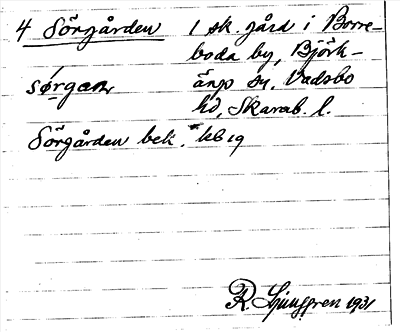 4 Sörgården 1 sk. gård i Borre-
boda by, Björk-
sø̀rgaɳ äng sn. Vadsbo
hd, Skarab. l.
Sörgården bek. kb 19
R. Ljunggren 1931